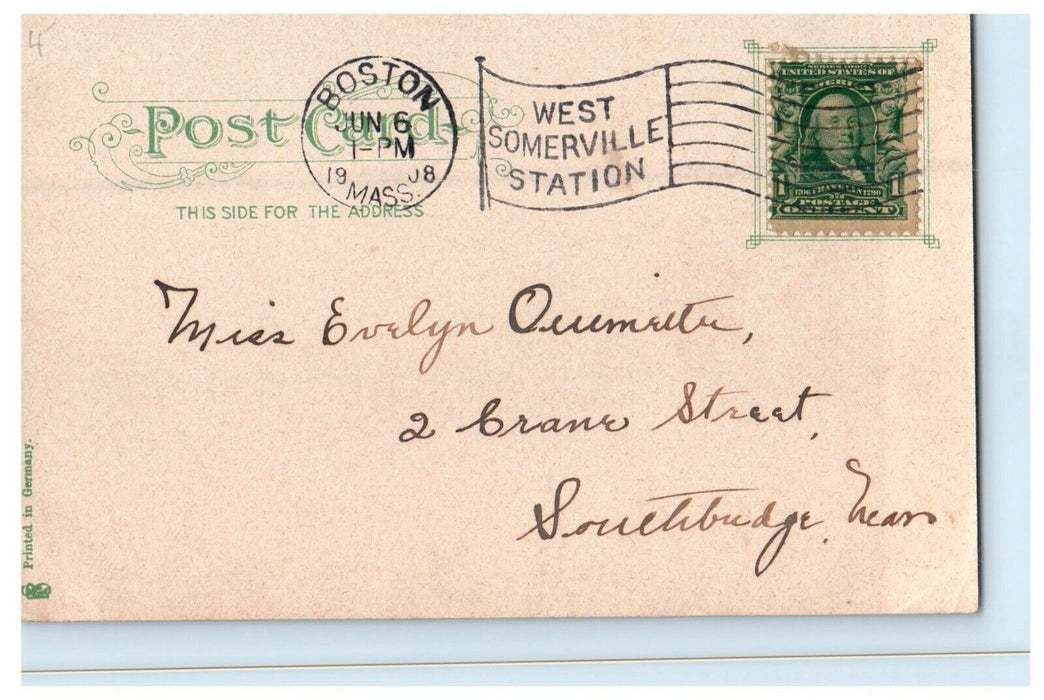 4
Post Card
THIS SIDE FOR THE ADDRESS
BOSTON
JUN 6
1-PM
19 08
MASS.
WEST
SOMERVILLE
STATION
UNITED STATES OF
AMERICA
1 1706 FRANKLIN 1790 1
POSTAGE
ONE CENT
Miss Evelyn Ouimette,
2 Crane Street,
Southbridge, Mass
Printed in Germany.